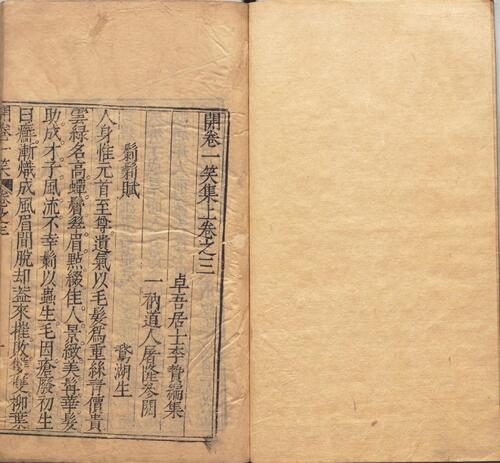 開卷一笑集上卷之三
卓吾居士李贄編集
一衲道人屠隆參閱
鬎鬁賦
鵞湖生
人身惟元首至尊遺氣以毛髮爲重絲青價貴
雲綠名高蟬鬢翠眉點綴佳人景緻美髯華髮
助成才子風流不幸癩以蟲生毛因瘡廢初生
曰癬漸熾成風眉間脫却盜來摧敗雙雙柳葉
開卷一笑
卷之三
一